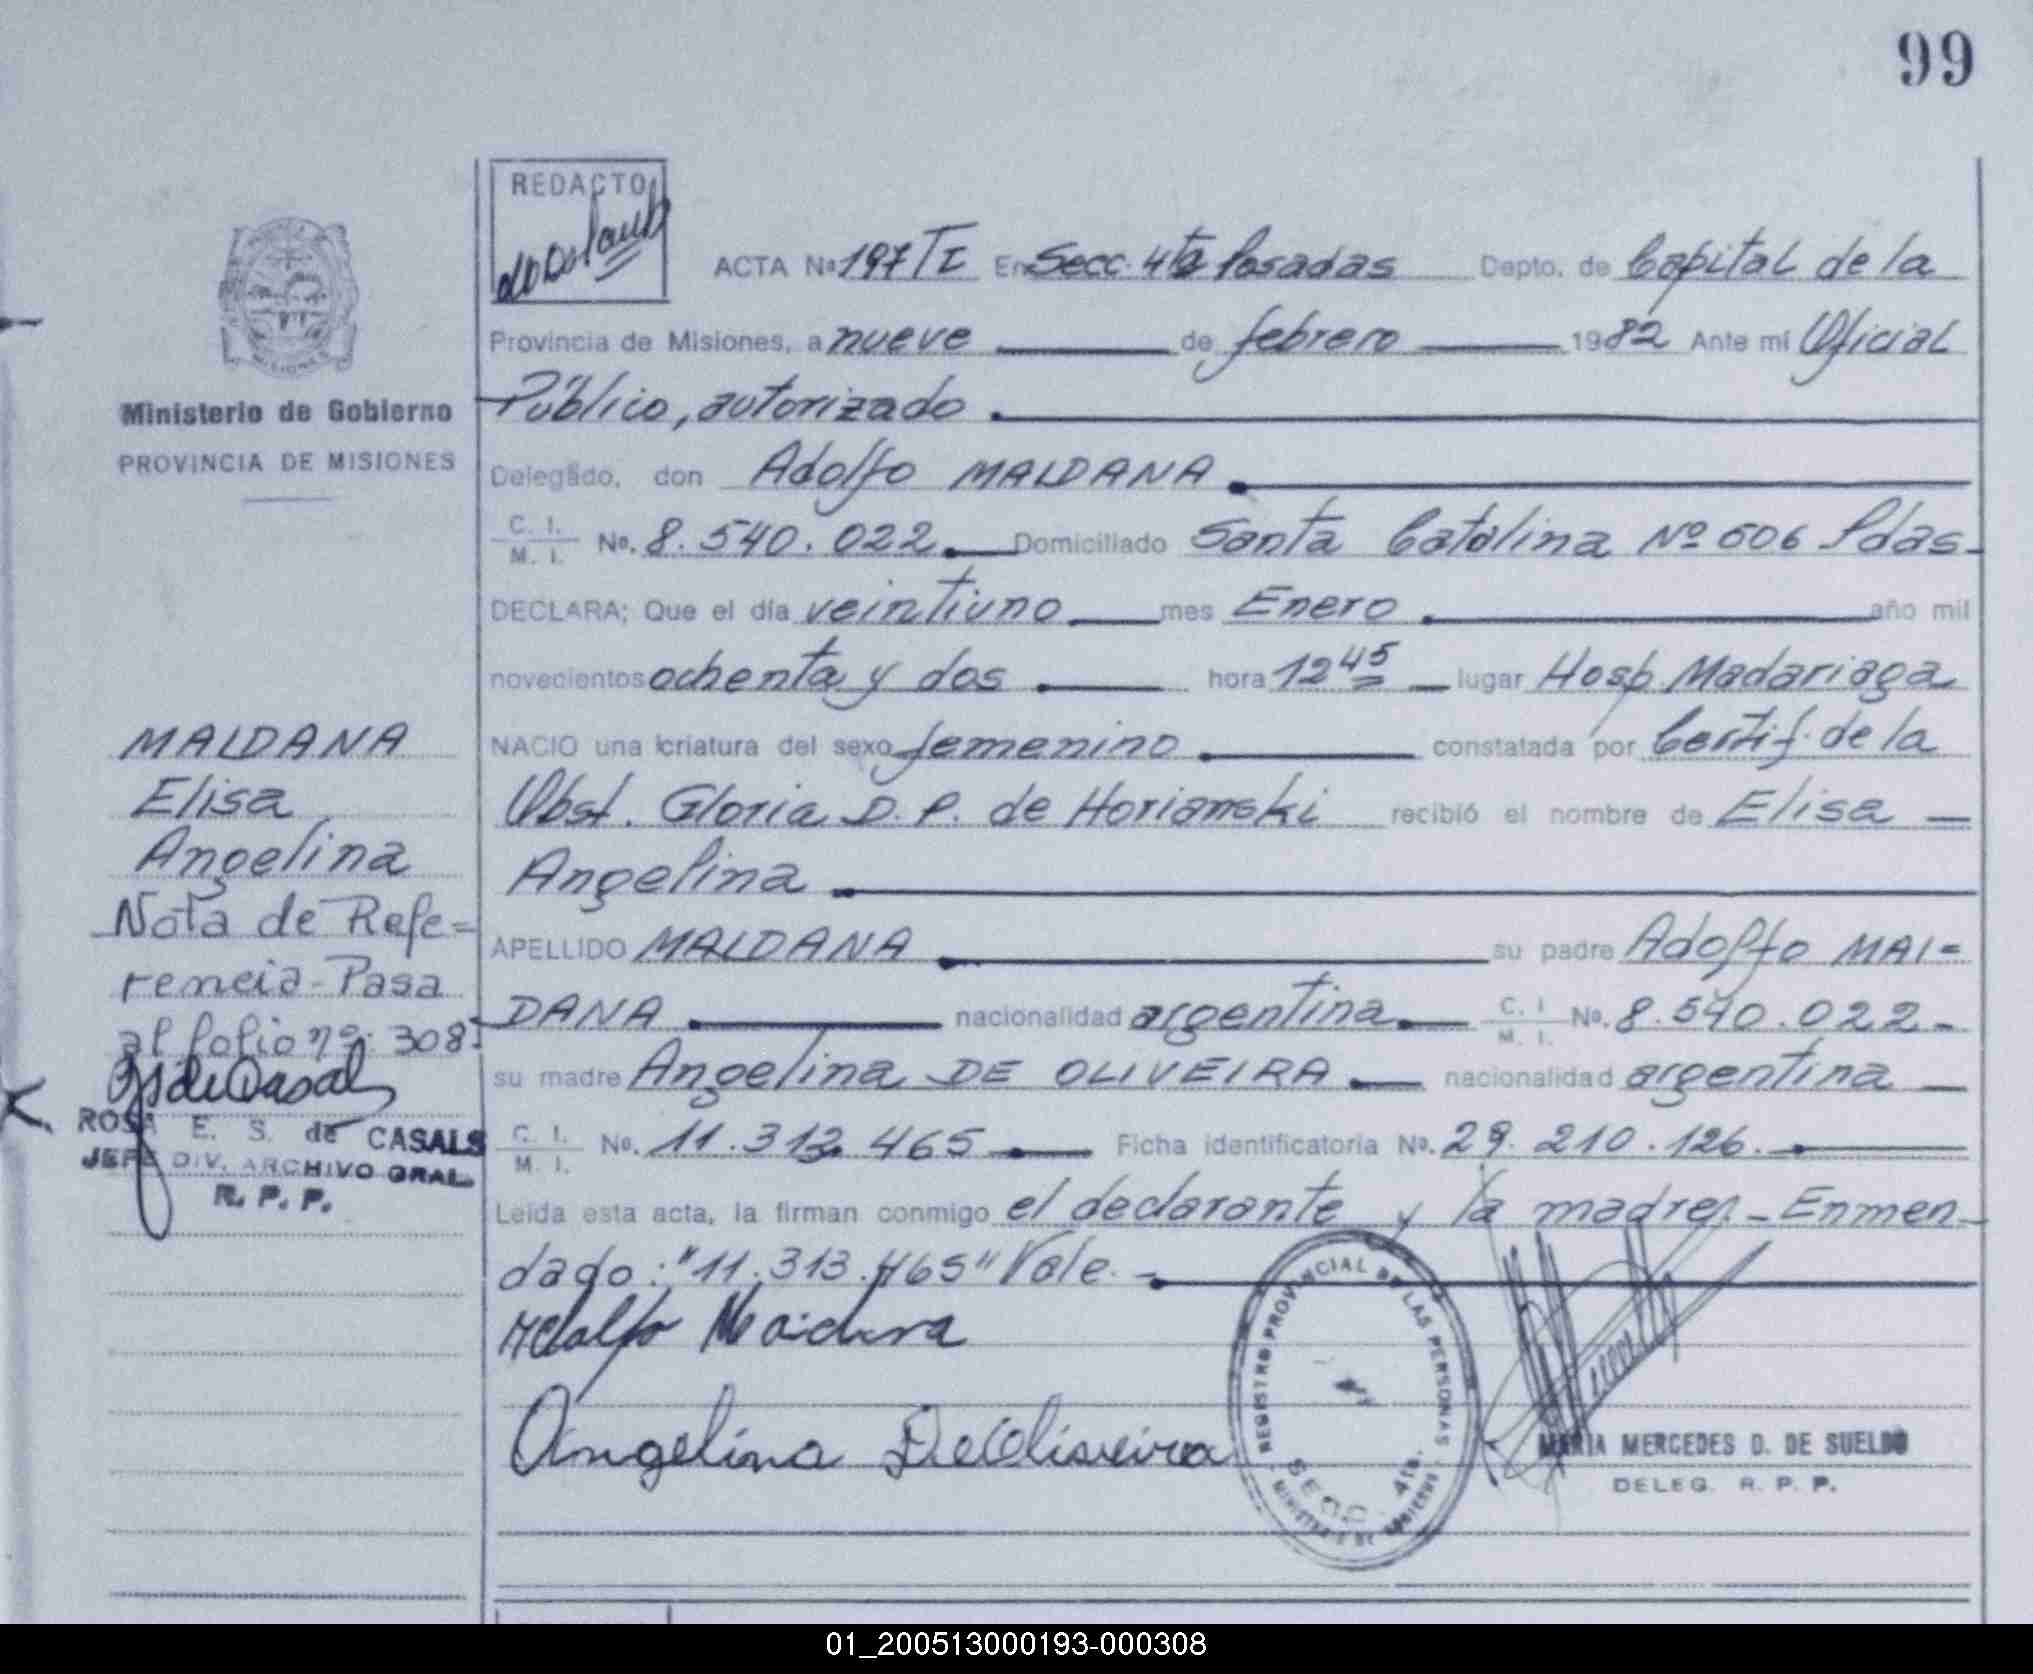 99
REDACTO
ACTA Nº 197 TI En Secc. 4ta Posadas Depto. de Capital de la
Provincia de Misiones, a nueve de febrero 1982 Ante mí Oficial
Público, autorizado
Ministerio de Gobierno
PROVINCIA DE MISIONES
Delegado, don Adolfo MAIDANA
C. I. M. I. No. 8.540.022. Domiciliado Santa Catalina Nº 606 Pdas-
DECLARA; Que el día veintiuno mes Enero año mil
novecientos ochenta y dos hora 12 45 lugar Hosp. Madariaga
NACIO una criatura del sexo femenino constatada por Certif. de la
Obst. Gloria D. P. de Horianski recibió el nombre de Elisa
Angelina
APELLIDO MAIDANA su padre Adolfo MAI=
DANA nacionalidad argentina C. I. M. I. No. 8.540.022-
su madre Angelina DE OLIVEIRA nacionalidad argentina
C. I. M. I. No. 11.313.465 Ficha identificatoria No. 29.210.126.
Leída esta acta, la firman conmigo el declarante y la madre. - Enmen-
dado: "11.313.465" Vale. -
Adolfo Maidana
Angelina De Oliveira
MAIDANA
Elisa
Angelina
Nota de Refe=
rencia - Pasa
al folio nº: 308.
ROSA E. S. de CASALS
JEFE DIV. ARCHIVO GRAL.
R. P. P.
REGISTRO PROVINCIAL DE LAS PERSONAS
SECC. 4ta.
MINISTERIO DE GOBIERNO
MARIA MERCEDES D. DE SUELDO
DELEG. R. P. P.
01_200513000193-000308